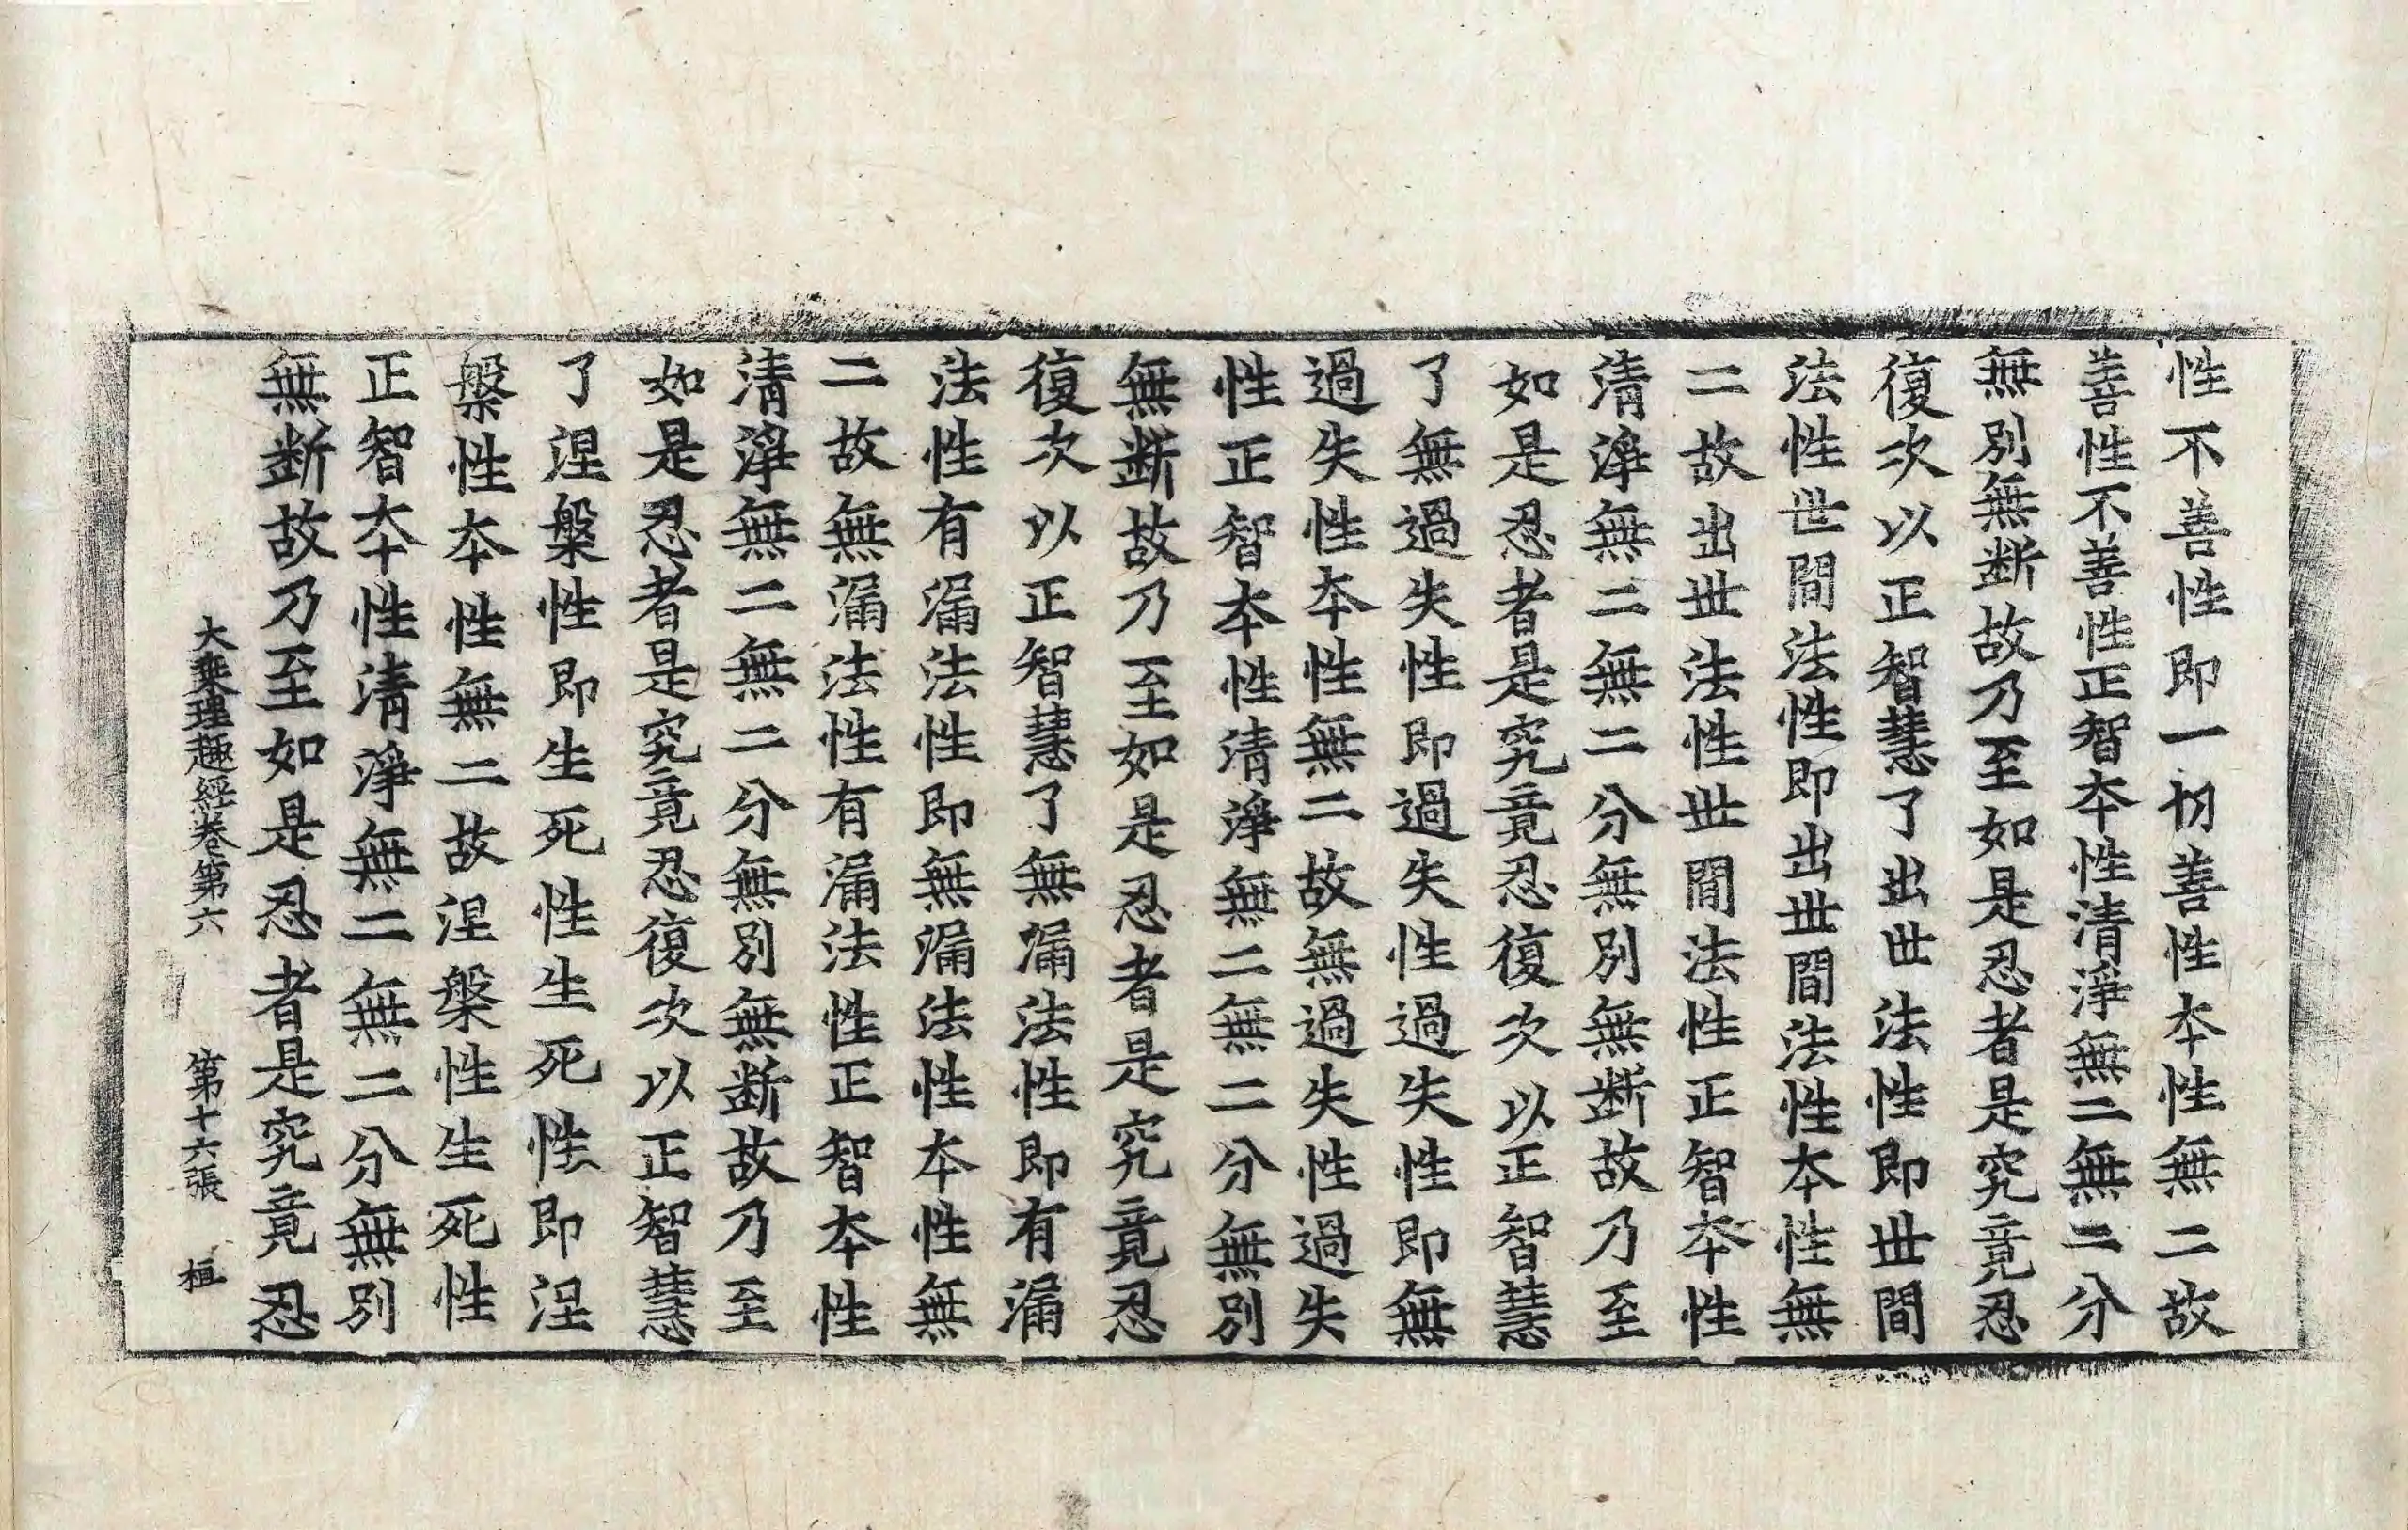 性不善性即一切善性本性無二故
善性不善性正智本性清淨無二無二分
無別無斷故乃至如是忍者是究竟忍
復次以正智慧了出世法性即世間
法性世間法性即出世間法性本性無
二故出世法性世間法性正智本性
清淨無二無二分無別無斷故乃至
如是忍者是究竟忍復次以正智慧
了無過失性即過失性過失性即無
過失性本性無二故無過失性過失
性正智本性清淨無二無二分無別
無斷故乃至如是忍者是究竟忍
復次以正智慧了無漏法性即有漏
法性有漏法性即無漏法性本性無
二故無漏法性有漏法性正智本性
清淨無二無二分無別無斷故乃至
如是忍者是究竟忍復次以正智慧
了涅槃性即生死性生死性即涅
槃性本性無二故涅槃性生死性
正智本性清淨無二無二分無別
無斷故乃至如是忍者是究竟忍
大乘理趣經卷第六 第十六張 桓